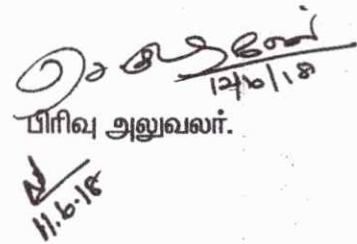 12/6/18
பிரிவு அலுவலர்.
11.6.18